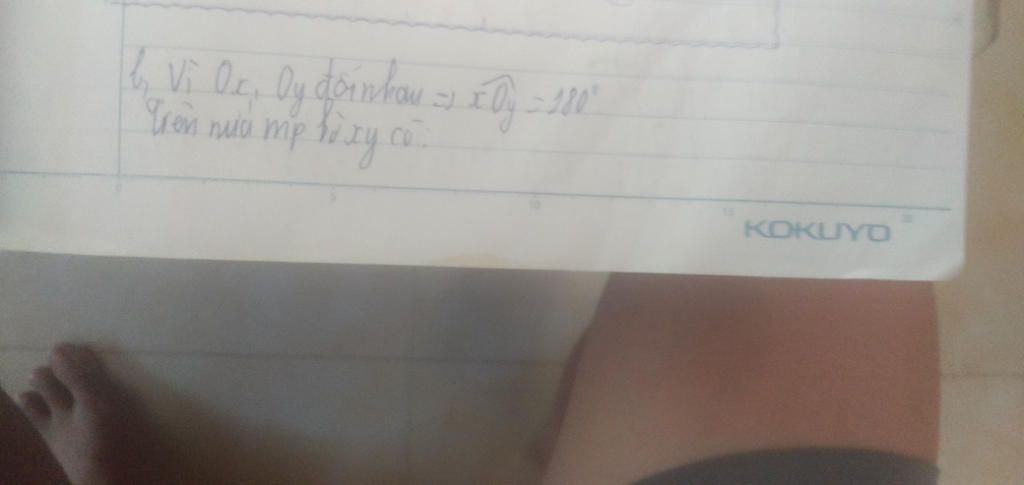 b, Vì Ox, Oy đối nhau => xOy = 180°
Trên nửa mp bờ xy có:
5 10 15 20
KOKUYO